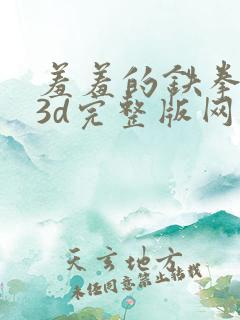 羞羞的铁拳
3d完整版网
天玄地方
未经同意禁止转载